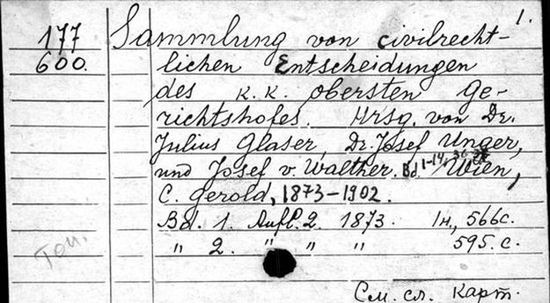 1.
177 Sammlung von civilrecht-
600. lichen Entscheidungen
des K. K. obersten Ge-
richtshofes. Hrsg. von Dr.
Julius Glaser, Dr. Josef Unger,
und Josef v. Walther. Bd. 1-14, Wien,
C. Gerold, 1873-1902.
Bd. 1. Aufl. 2. 1873. 1н, 566 с.
" 2. " " " 595. с.
Топ.
См. сл. карт.